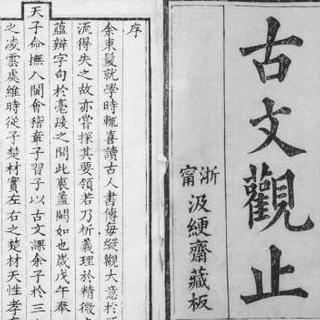 古文觀止
浙甯
汲綆齋藏板
序
余束髮就學時輒喜讀古人書傳每縱觀大意於
流得失之故亦嘗探其要領若乃析義理於精微
蘊辨字句於毫釐之間此衷蓋闕如也歲戊午奉
天子命撫八閩會稽章子習子以古文課余子於三
之凌雲處維時從子楚材實左右之楚材天性孝